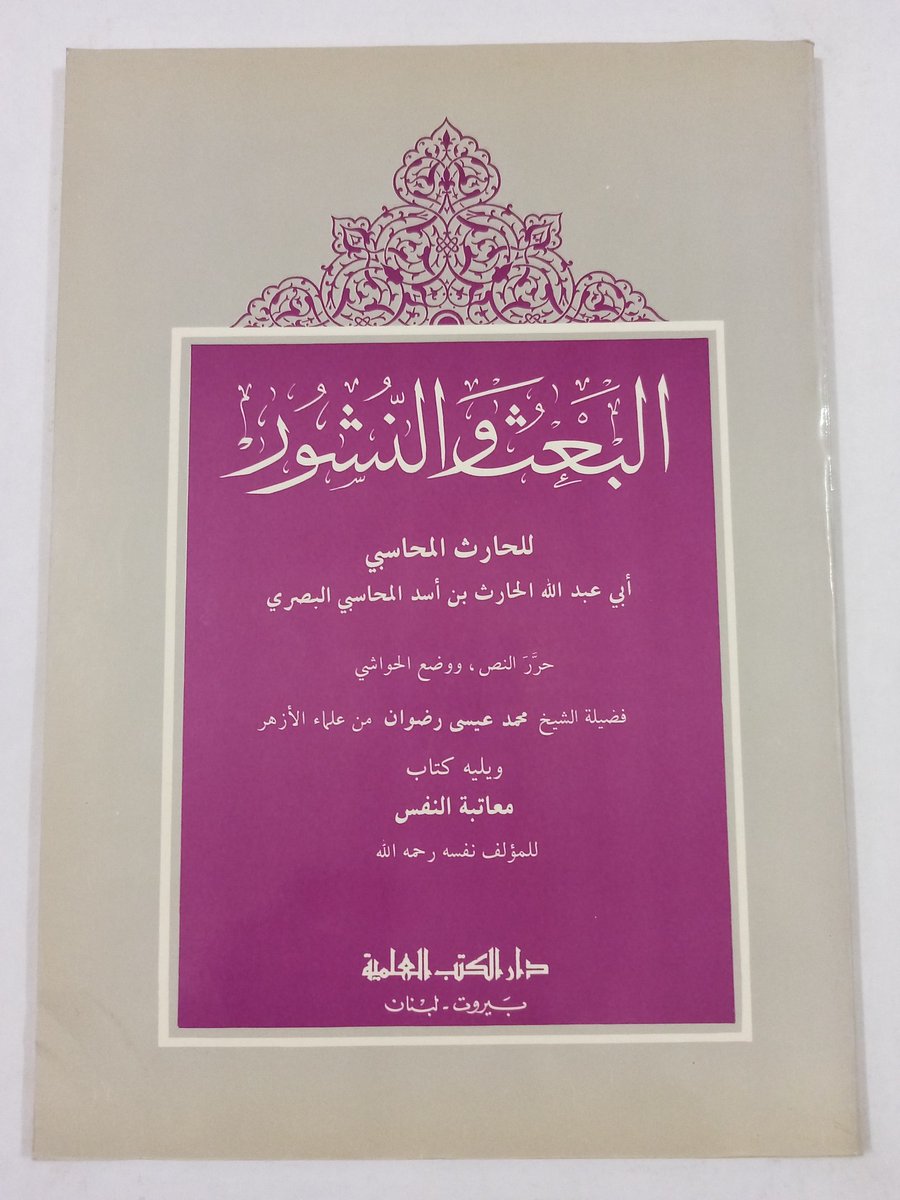 البَعْث وَالنّشُور
للحارث المحاسبي
أبي عبد الله الحارث بن أسد المحاسبي البصري
حرَّرَ النص، ووضع الحواشي
فضيلة الشيخ محمد عيسى رضوان من علماء الأزهر
ويليه كتاب
معاتبة النفس
للمؤلف نفسه رحمه الله
دار الكتب العلمية
بَيروت - لبْنان